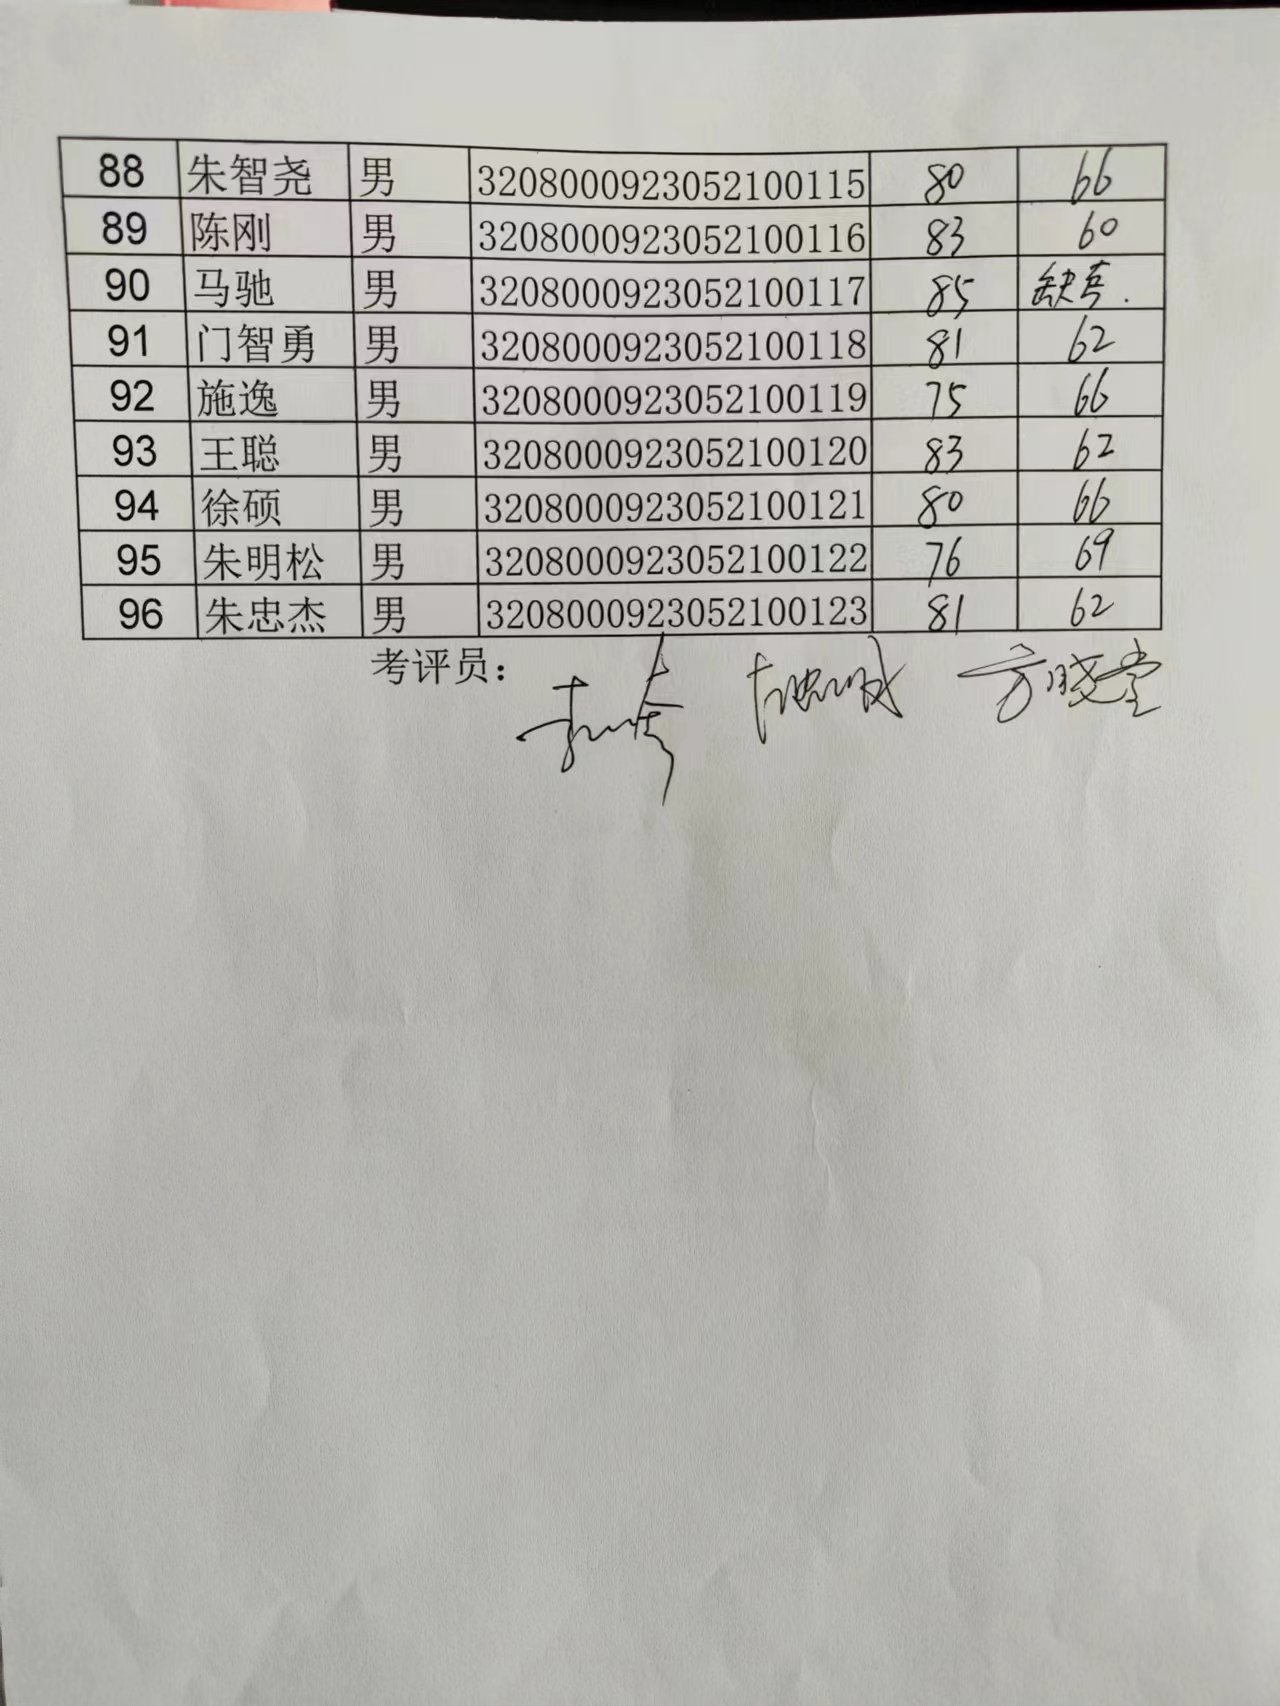 88 朱智尧 男 3208000923052100115 80 66
89 陈刚 男 3208000923052100116 83 60
90 马驰 男 3208000923052100117 85 缺考.
91 门智勇 男 3208000923052100118 81 62
92 施逸 男 3208000923052100119 75 66
93 王聪 男 3208000923052100120 83 62
94 徐硕 男 3208000923052100121 80 66
95 朱明松 男 3208000923052100122 76 69
96 朱忠杰 男 3208000923052100123 81 62
考评员： 方晓堂